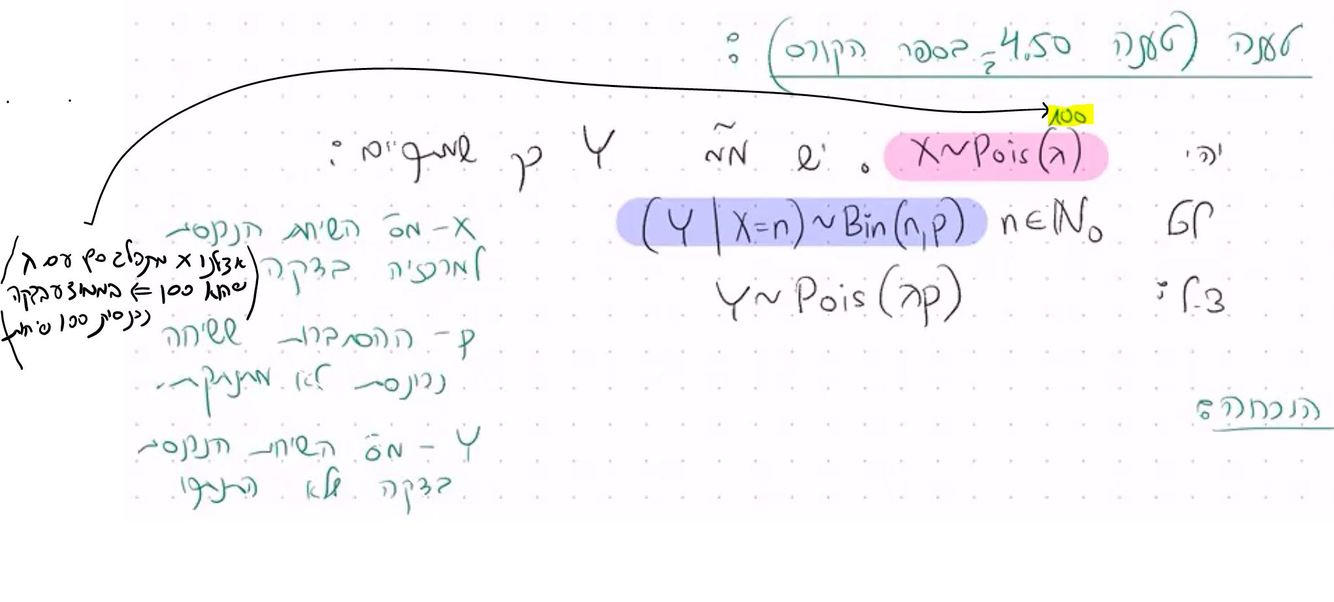 טענה (טענה 4.50 בספר הקורס):
100
יהי X~Pois(λ). יש מ"מ Y כך שמתקיים:
לכל n∈ℕ₀ (Y | X=n) ~ Bin(n,p)
צ.ל: Y~ Pois(λp)
הוכחה:
X - מס' השיחות הנכנסות
למרכזיה בדקה
(אצלנו X מתפלג פואס' עם λ
שהוא 100 ⇐ בממוצע בדקה
נכנסות 100 שיחות)
p - ההסתברות ששיחה
נכנסת לא מתנתקת.
Y - מס' השיחות הנכנסות
בדקה שלא התנתקו